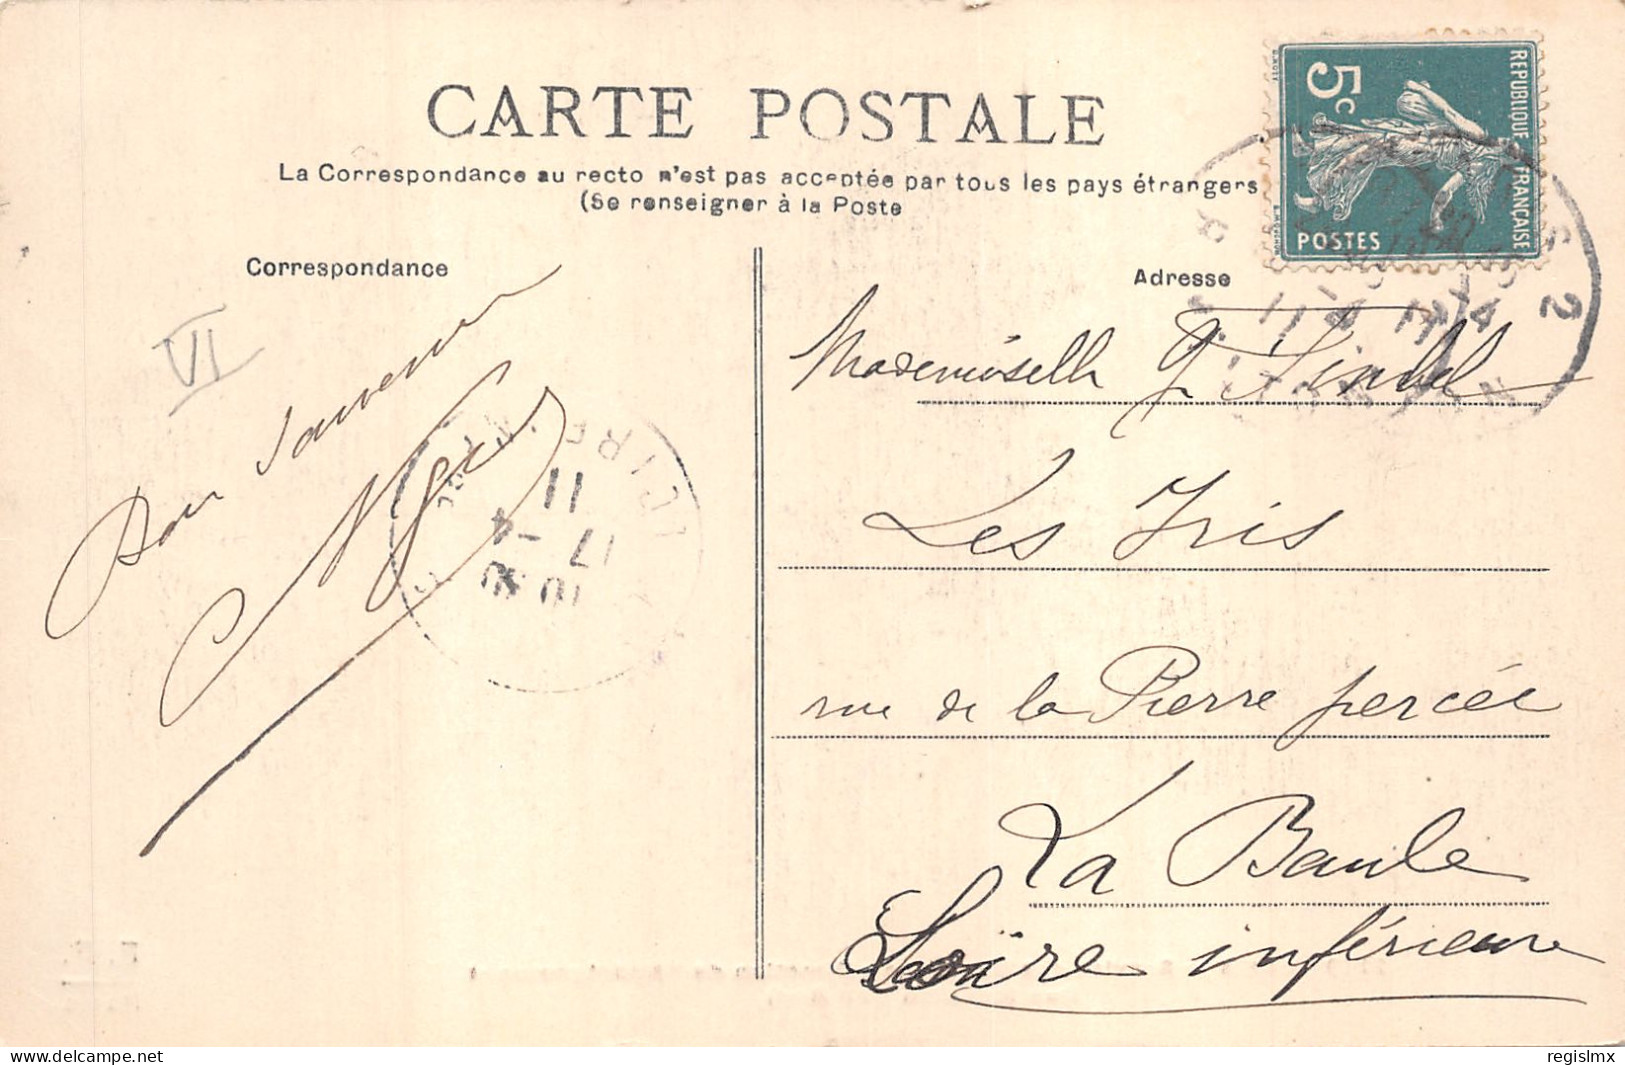 CARTE POSTALE
La Correspondance au recto n'est pas acceptée par tous les pays étrangers
(Se renseigner à la Poste
Correspondance
Adresse
5c
REPUBLIQUE FRANÇAISE
POSTES
2
VI
Bon Souvenir
11
17 -4
Mademoiselle
Les Iris
rue de la Pierre percée
La Baule
Loïre inférieure
regislmx